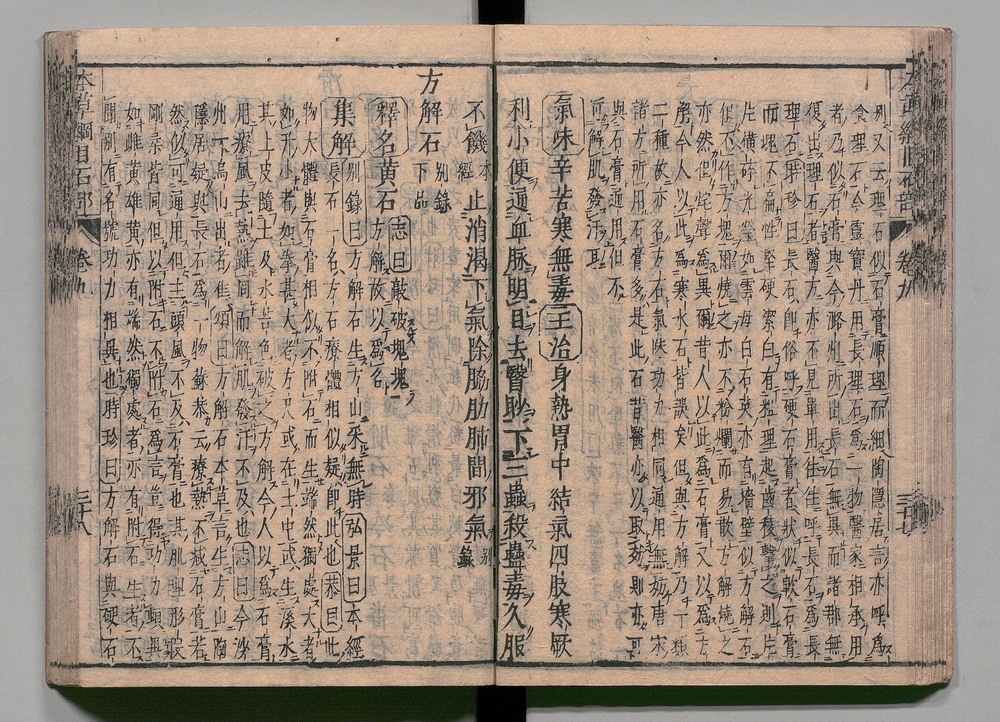 別又云理石似石膏順理而細陶隱居言亦呼爲
食理石今靈寶丹用長理石爲一物醫家相承用
者乃似石膏與今潞州所出長石無異而諸郡無
復出理石者醫方亦不見單用往往呼長石爲長
理石時珍曰長石即俗呼硬石膏者狀似軟石膏
而塊不扁性堅硬潔白有粗理起齒稜擊之則片片
橫碎光瑩如雲母白石英亦有墻壁似方解石
但不作方塊爾燒之亦不粉爛而易散方解燒之
亦然但烢聲爲異爾昔人以此爲石膏又以爲方
解今人以此爲寒水石皆誤矣但與方解乃一類
二種故亦名方石氣味功力相同通用無妨唐宋
諸方所用石膏多是此石昔醫亦以取效則亦可
與石膏通用但不
可解肌發汗耳
氣味辛苦寒無毒主治身熱胃中結氣四肢寒厥
利小便通血脉明目去瞖眇下三蟲殺蠱毒久服
不饑本經止消渴下氣除脇肋肺間邪氣別錄
方解石別錄下品
釋名黄石志曰敲破塊塊方解故以爲名
集解別錄曰方解石生方山采無時弘景曰本經
長石一名方石療體相似疑即此也恭曰
物大體與石膏相似不附石而生端然獨處大者
如升小者如拳甚大者方尺或在土中或生溪水
其上皮隨土及水苔色破之方解今人以爲石膏
用療風去熱雖同而解肌發汗不及也志曰今沙
州大鳥山出者佳頌曰方解石本草言生方山陶
隱居疑與長石爲一物蘇恭云療熱不減石膏若
然似可通用但主頭風不及石膏也其肌理形段
剛柔皆同但以附石不附石爲言豈得功力頓異
如雌黄雄黄亦有端然獨處者亦有附石生者不
聞別有名號功力相異也時珍曰方解石與硬石
本草綱目石部 卷九